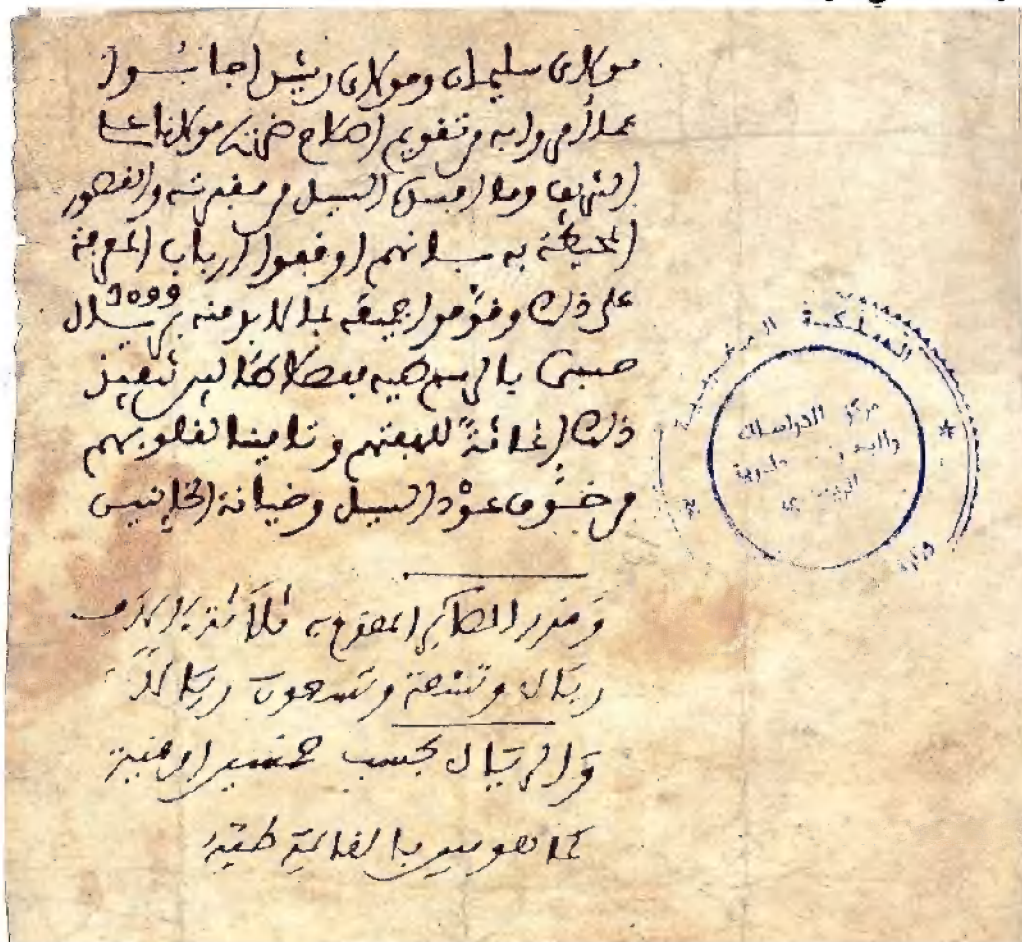 مولاي سليمان ومولاي رشيد اجابـوا
عما أمروا به من تقويم اصلاح ضريح مولانا علي
الشريف وما افسده السيل من مقبرته والقصور
المحيطة به بـانهم اوقفوا ارباب المعرفة
على ذلك وقوموا جميعه بما لا بد منه بريـال 3099
حسبى بالرسم طيه بعضلا تنفيذ
ذلك اغاثة للهفتهم وتأمينا لقلوبهم
من خـوف عـود السيل وخيانة الخاينين
وقدر الصائر المقوم به ثلاثة آلاف
ريال وتسعة وتسعون ريالا
والريال بحسب خمسين اوقية
كما هو مبين بالقائمة طيه
المملكة المغربية
مركز الدراسات
والبحوث العلوية
الريصاني